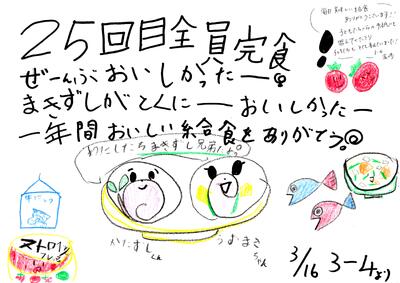 25回目全員完食!
ぜーんぶおいしかったー。
まきずしがとくにーおいしかったー
一年間おいしい給食をありがとう。
毎日おいしい給食
ありがとうございます!!
わたしたちまきずし兄弟だよ。
うずまき
ちゃん
くん
3/16 3-4より